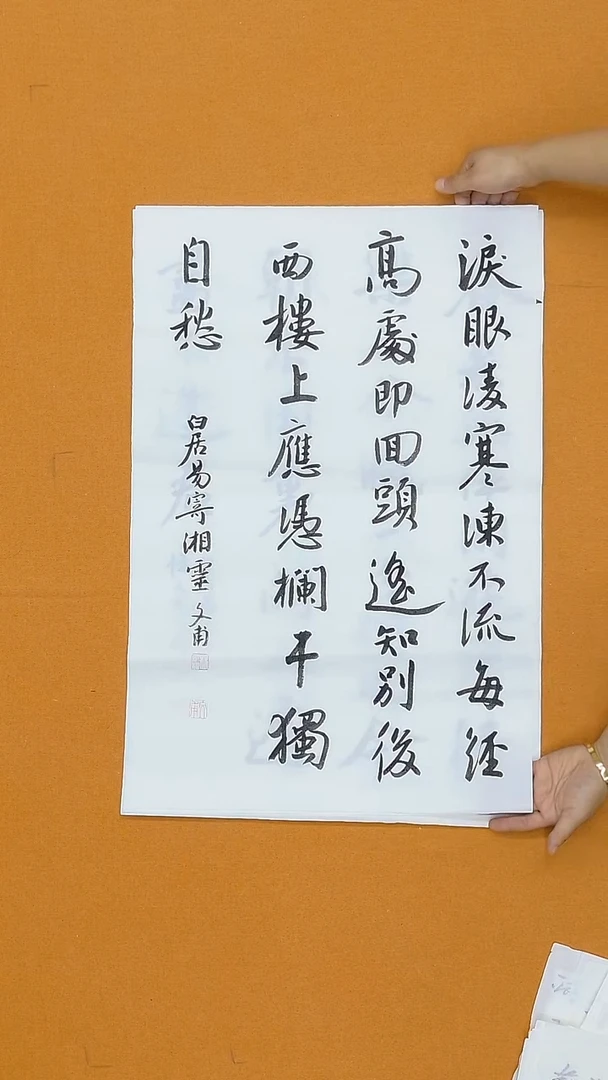 淚眼凌寒凍不流每經
高處即回頭遙知別後
西樓上應憑欄干獨
自愁
白居易寄湘靈 文甫